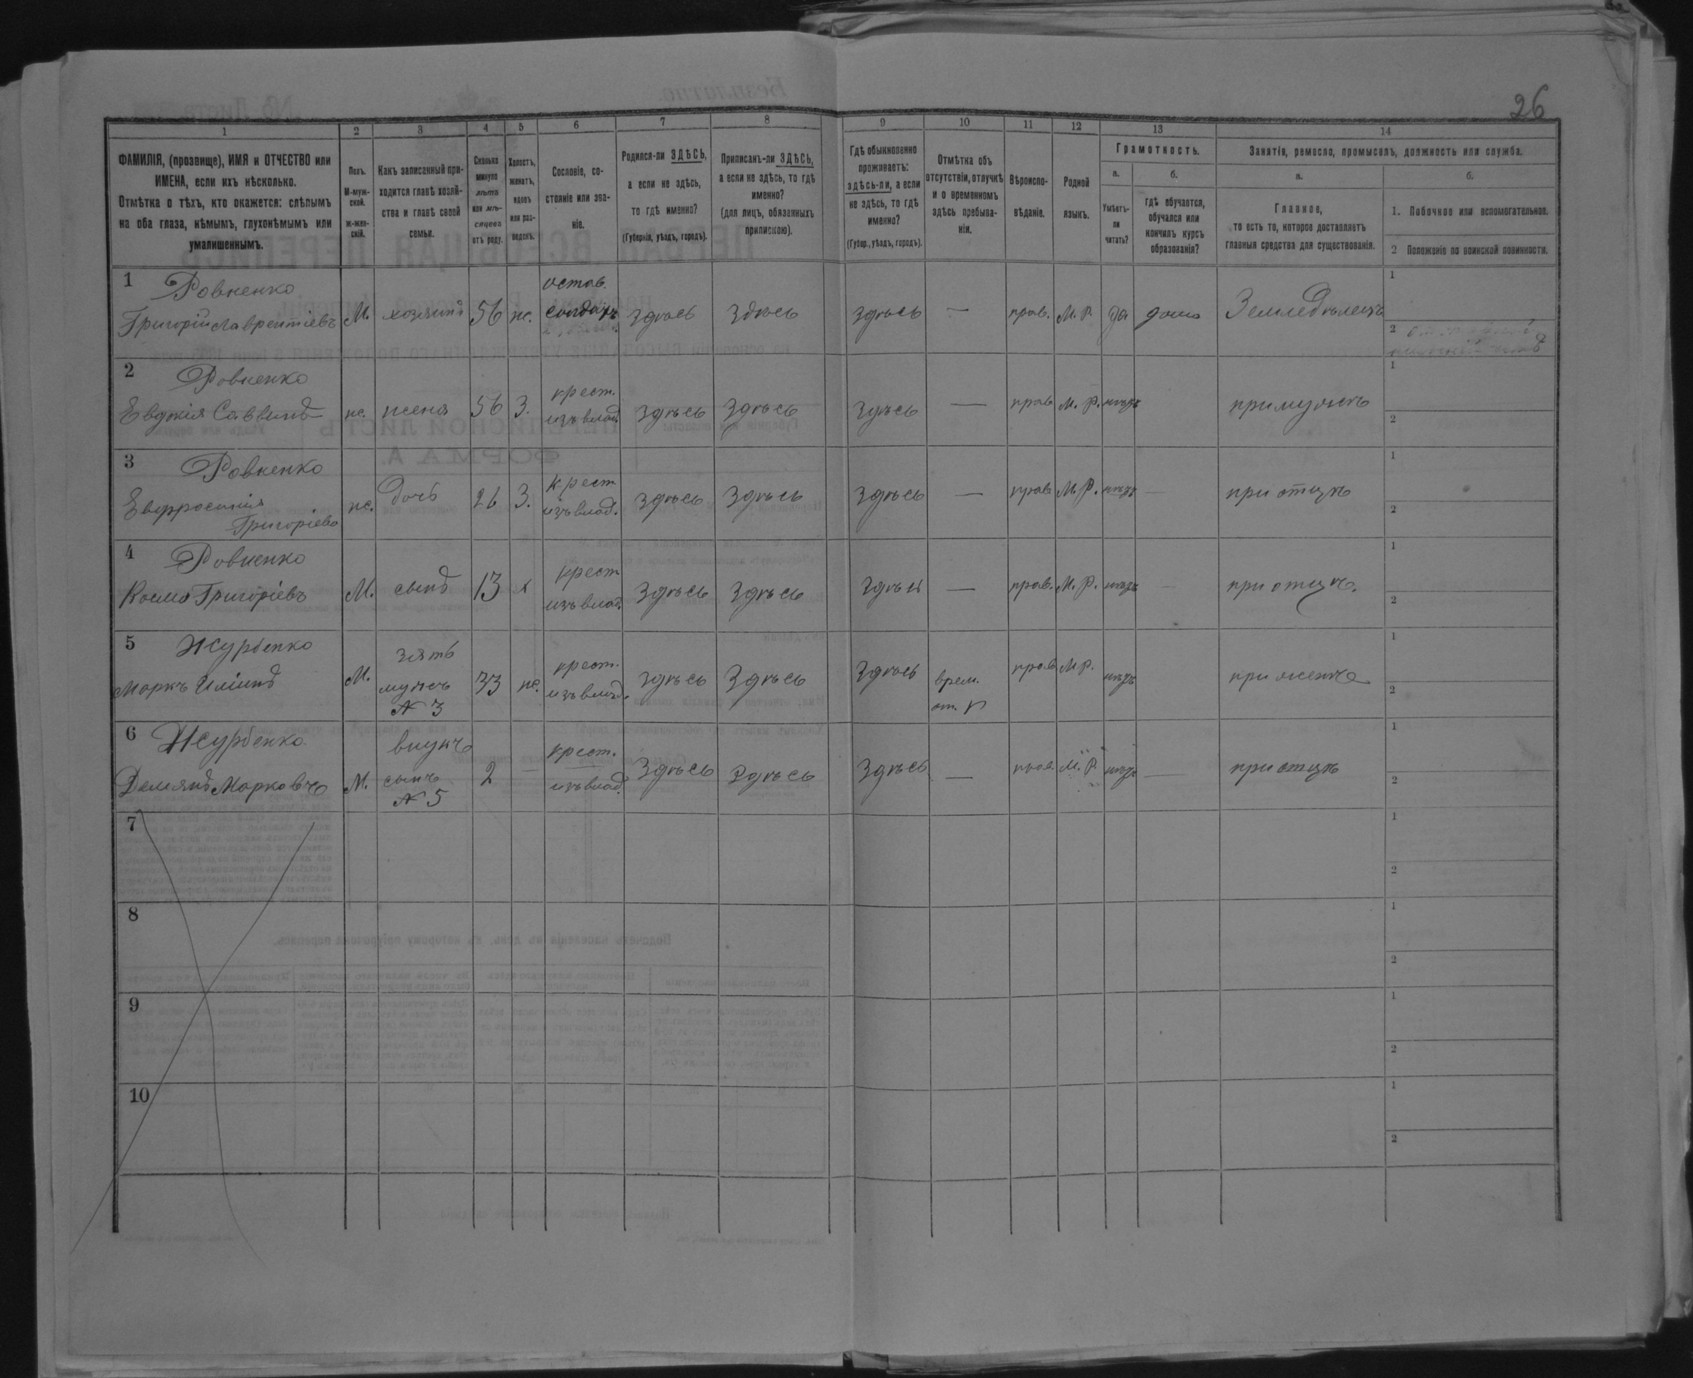 26
1 2 3 4 5 6 7 8 9 10 11 12 13 14
ФАМИЛІЯ, (прозвище), ИМЯ и ОТЧЕСТВО или
ИМЕНА, если ихъ нѣсколько.
Отмѣтка о тѣхъ, кто окажется: слѣпымъ
на оба глаза, нѣмымъ, глухонѣмымъ или
умалишеннымъ.
Полъ.
М-муж-
ской.
ж-жен-
скій.
Какъ записанный при-
ходится главѣ хозяй-
ства и главѣ своей
семьи.
Сколько
минуло
лѣтъ
или мѣ-
сяцевъ
отъ роду.
Холостъ,
женатъ,
вдовъ
или раз-
веденъ.
Сословіе, со-
стояніе или зва-
ніе.
Родился-ли ЗДѢСЬ,
а если не здѣсь,
то гдѣ именно?
(Губернія, уѣздъ, городъ).
Приписанъ-ли ЗДѢСЬ,
а если не здѣсь, то гдѣ
именно?
(для лицъ, обязанныхъ
припискою).
Гдѣ обыкновенно
проживаетъ:
здѣсь-ли, а если
не здѣсь, то гдѣ
именно?
(Губер., уѣздъ, городъ).
Отмѣтка объ
отсутствіи, отлучкѣ
и о временномъ
здѣсь пребыва-
ніи.
Вѣроиспо-
вѣданіе.
Родной
языкъ.
Грамотность.
а.
Умѣетъ-
ли
читать?
б.
гдѣ обучается,
обучался или
кончилъ курсъ
образованія?
Занятія, ремесло, промыселъ, должность или служба.
а.
Главное,
то есть то, которое доставляетъ
главныя средства для существованія.
б.
1. Побочное или вспомогательное.
2 Положеніе по воинской повинности.
1 Ровненко
Григорій Лаврентіевъ М. хозяинъ 56 ж. отстав. солдатъ здѣсь здѣсь здѣсь — прав. М. Р. да дома Земледѣлецъ 1
2
2 Ровненко
Евдокія Саввина ж. жена 56 З. крест. изъ влад. здѣсь здѣсь здѣсь — прав М. Р. нѣтъ при мужѣ 1
2
3 Ровненко
Евфросинія
Григоріева ж. дочь 26 З. крест. изъ влад. здѣсь здѣсь здѣсь — прав М. Р. нѣтъ — при отцѣ 1
2
4 Ровненко
Косма Григоріевъ М. сынъ 13 х крест изъ влад. здѣсь здѣсь здѣсь — прав. М. Р. нѣтъ — при отцѣ. 1
2
5 Журбенко
Маркъ М. зять мужъ № 3 33 ж. крест. изъ влад. здѣсь здѣсь здѣсь врем. от. прав М. Р. нѣтъ при женѣ 1
2
6 Журбенко
Демянъ Марковъ М. внукъ сынъ № 5 2 — крест. изъ влад. здѣсь здѣсь здѣсь — прав М. Р. нѣтъ — при отцѣ 1
2
7 1
2
8 1
2
9 1
2
10 1
2